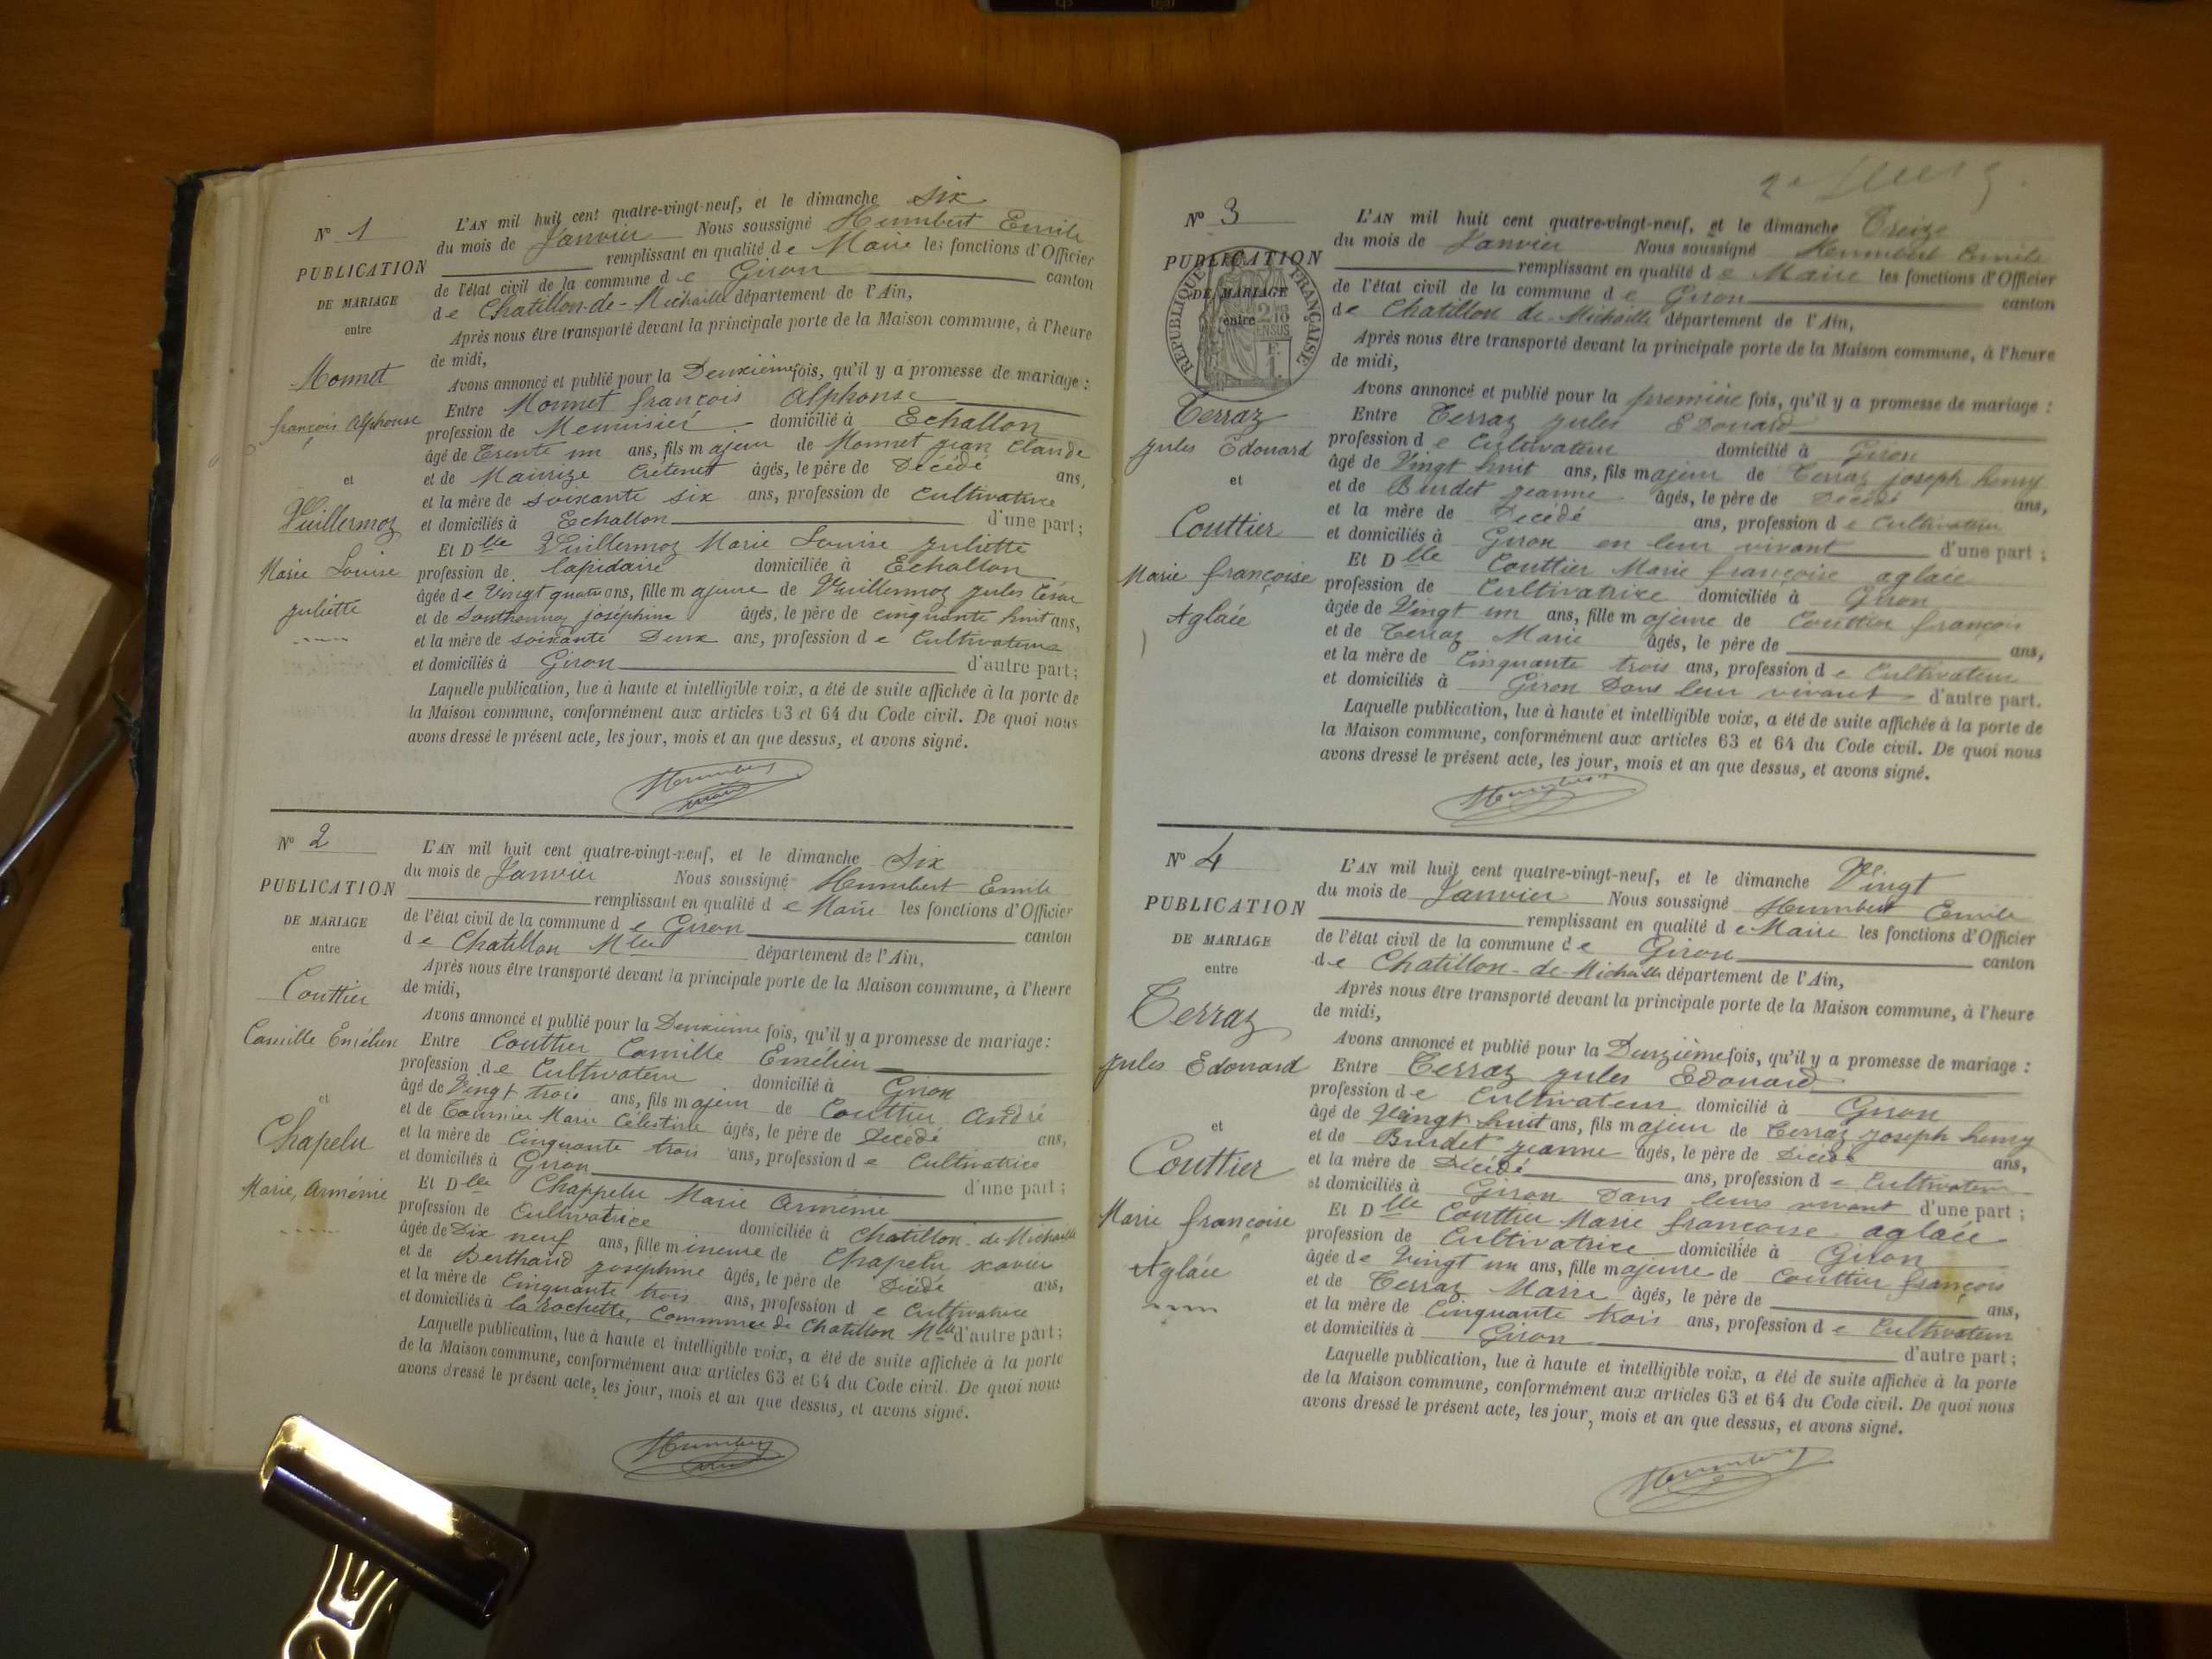 N° 1
PUBLICATION
DE MARIAGE
entre
Monnet
françois Alphonse
et
Vuillermoz
Marie Louise
juliette
L'AN mil huit cent quatre-vingt-neuf, et le dimanche Six
du mois de Janvier Nous soussigné Humbert Emile
remplissant en qualité de Maire les fonctions d'Officier
de l'état civil de la commune de Giron canton
de Chatillon-de-Michaille département de l'Ain,
Après nous être transporté devant la principale porte de la Maison commune, à l'heure
de midi,
Avons annoncé et publié pour la Deuxième fois, qu'il y a promesse de mariage :
Entre Monnet françois Alphonse
profession de Menuisier domicilié à Echallon
âgé de Trente un ans, fils majeur de Monnet jean Claude
et de Maurize Crétenet âgés, le père de Décédé ans,
et la mère de soixante six ans, profession de cultivatrice
et domiciliés à Echallon d'une part ;
Et Dlle Vuillermoz Marie Louise juliette
profession de lapidaire domiciliée à Echallon
âgée de Vingt quatre ans, fille majeure de Vuillermoz jules César
et de joséphine âgés, le père de cinquante huit ans,
et la mère de soixante Deux ans, profession de Cultivateurs
et domiciliés à Giron d'autre part ;
Laquelle publication, lue à haute et intelligible voix, a été de suite affichée à la porte de
la Maison commune, conformément aux articles 63 et 64 du Code civil. De quoi nous
avons dressé le présent acte, les jour, mois et an que dessus, et avons signé.
Humbert
N° 2
PUBLICATION
DE MARIAGE
entre
Couttier
Camille Emélien
et
Chapelu
Marie, Arménie
L'AN mil huit cent quatre-vingt-neuf, et le dimanche Six
du mois de Janvier Nous soussigné Humbert Emile
remplissant en qualité de Maire les fonctions d'Officier
de l'état civil de la commune de Giron canton
de Chatillon Mlle département de l'Ain,
Après nous être transporté devant la principale porte de la Maison commune, à l'heure
de midi,
Avons annoncé et publié pour la Deuxième fois, qu'il y a promesse de mariage :
Entre Couttier Camille Emélien
profession de Cultivateur domicilié à Giron
âgé de Vingt trois ans, fils majeur de Couttier André
et de Tournier Marie Célestine âgés, le père de Décédé ans,
et la mère de Cinquante trois ans, profession de Cultivatrice
et domiciliés à Giron d'une part ;
Et Dlle Chappelu Marie Arménie
profession de Cultivatrice domiciliée à Chatillon-de-Michaille
âgée de Dix neuf ans, fille mineure de Chapelu xavier
et de Berthaud joséphine âgés, le père de Décédé ans,
et la mère de Cinquante trois ans, profession de Cultivatrice
et domiciliés à la rochette, Commune de Chatillon Mlle d'autre part ;
Laquelle publication, lue à haute et intelligible voix, a été de suite affichée à la porte
de la Maison commune, conformément aux articles 63 et 64 du Code civil. De quoi nous
avons dressé le présent acte, les jour, mois et an que dessus, et avons signé.
Humbert
N° 3
PUBLICATION
DE MARIAGE
entre
REPUBLIQUE FRANÇAISE
Terraz
jules Edouard
et
Couttier
Marie françoise
Aglaée
L'AN mil huit cent quatre-vingt-neuf, et le dimanche Treize
du mois de Janvier Nous soussigné Humbert Emile
remplissant en qualité de Maire les fonctions d'Officier
de l'état civil de la commune de Giron canton
de Chatillon de-Michaille département de l'Ain,
Après nous être transporté devant la principale porte de la Maison commune, à l'heure
de midi,
Avons annoncé et publié pour la première fois, qu'il y a promesse de mariage :
Entre Terraz jules Edouard
profession de Cultivateur domicilié à Giron
âgé de Vingt huit ans, fils majeur de Terraz joseph henry
et de Burdet jeanne âgés, le père de Décédé ans,
et la mère de Décédé ans, profession de Cultivateur
et domiciliés à Giron en leur vivant d'une part ;
Et Dlle Couttier Marie françoise aglaée
profession de Cultivatrice domiciliée à Giron
âgée de Vingt un ans, fille majeure de Couttier françois
et de Terraz Marie âgés, le père de ans,
et la mère de Cinquante trois ans, profession de Cultivateur
et domiciliés à Giron Dans leur vivant d'autre part.
Laquelle publication, lue à haute et intelligible voix, a été de suite affichée à la porte de
la Maison commune, conformément aux articles 63 et 64 du Code civil. De quoi nous
avons dressé le présent acte, les jour, mois et an que dessus, et avons signé.
Humbert
N° 4
PUBLICATION
DE MARIAGE
entre
Terraz
jules Edouard
et
Couttier
Marie françoise
Aglaée
L'AN mil huit cent quatre-vingt-neuf, et le dimanche Vingt
du mois de Janvier Nous soussigné Humbert Emile
remplissant en qualité de Maire les fonctions d'Officier
de l'état civil de la commune de Giron canton
de Chatillon-de-Michaille département de l'Ain,
Après nous être transporté devant la principale porte de la Maison commune, à l'heure
de midi,
Avons annoncé et publié pour la Deuzième fois, qu'il y a promesse de mariage :
Entre Terraz jules Edouard
profession de Cultivateur domicilié à Giron
âgé de Vingt huit ans, fils majeur de Terraz joseph henry
et de Burdet jeanne âgés, le père de Décédé ans,
et la mère de Décédé ans, profession de Cultivateur
et domiciliés à Giron Dans leurs vivant d'une part ;
Et Dlle Couttier Marie francoise aglaée
profession de Cultivatrice domiciliée à Giron
âgée de Vingt un ans, fille majeure de Couttier françois
et de Terraz Marie âgés, le père de ans,
et la mère de Cinquante trois ans, profession de Cultivateur
et domiciliés à Giron d'autre part ;
Laquelle publication, lue à haute et intelligible voix, a été de suite affichée à la porte
de la Maison commune, conformément aux articles 63 et 64 du Code civil. De quoi nous
avons dressé le présent acte, les jour, mois et an que dessus, et avons signé.
Humbert